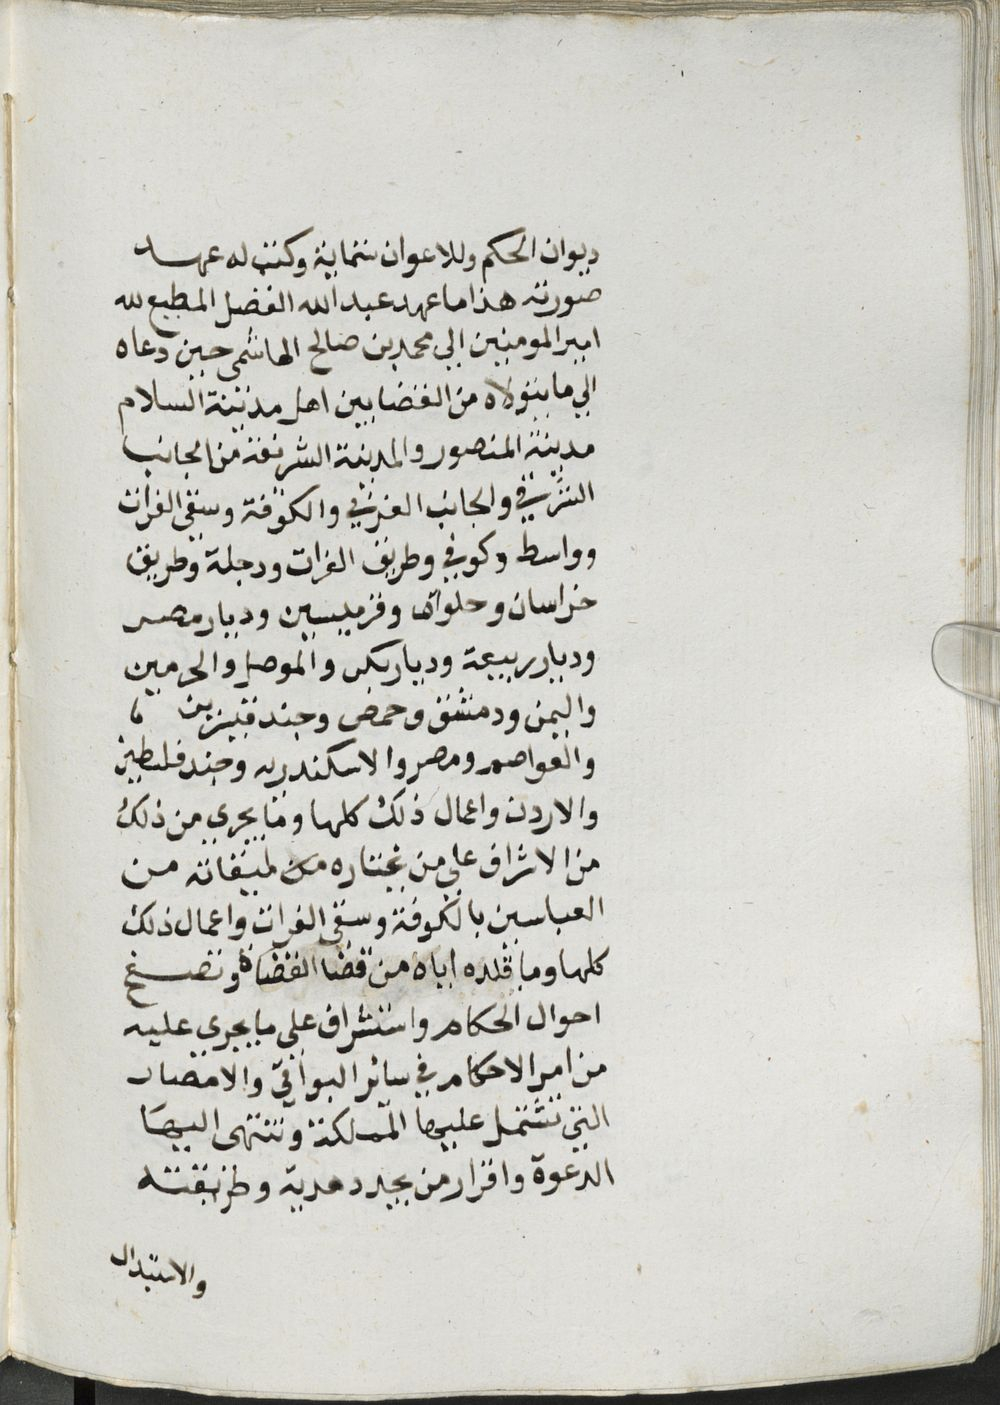 ديوان الحكم وللاعوان ستماية وكتب له عهد
صورته هذا ما عهد عبد الله الفضل المطيع لله
امير المومنين الي محمد بن صالح الهاشمي حين دعاه
الي ما يتولاه من القضا بين اهل مدينة السلام
مدينة المنصور والمدينة الشرقية من الجانب
الشرقي والجانب الغربي والكوفة وسقي الفرات
وواسط وكوفي وطريق الفرات ودجلة وطريق
خراسان وحلوان وقرميسين وديار مصر
وديار ربيعة وديار بكر والموصل والحرمين
واليمن ودمشق وحمص وجند قنسرين
والعواصم ومصر والاسكندريه وجند فلسطين
والاردن واعمال ذلك كلها وما يجري من ذلك
من الاشراف علي من يختاره من
العباسين بالكوفة وسقي الفرات واعمال ذلك
كلها وما قلده اياه من قضا القضاة وتصفح
احوال الحكام واستشراف علي ما يجري عليه
من امر الاحكام في سائر النواقي والامصار
التي تشتمل عليها المملكة وتنتهي اليها
الدعوة واقرار من يجدد هدية وطريقته
والاستبدال